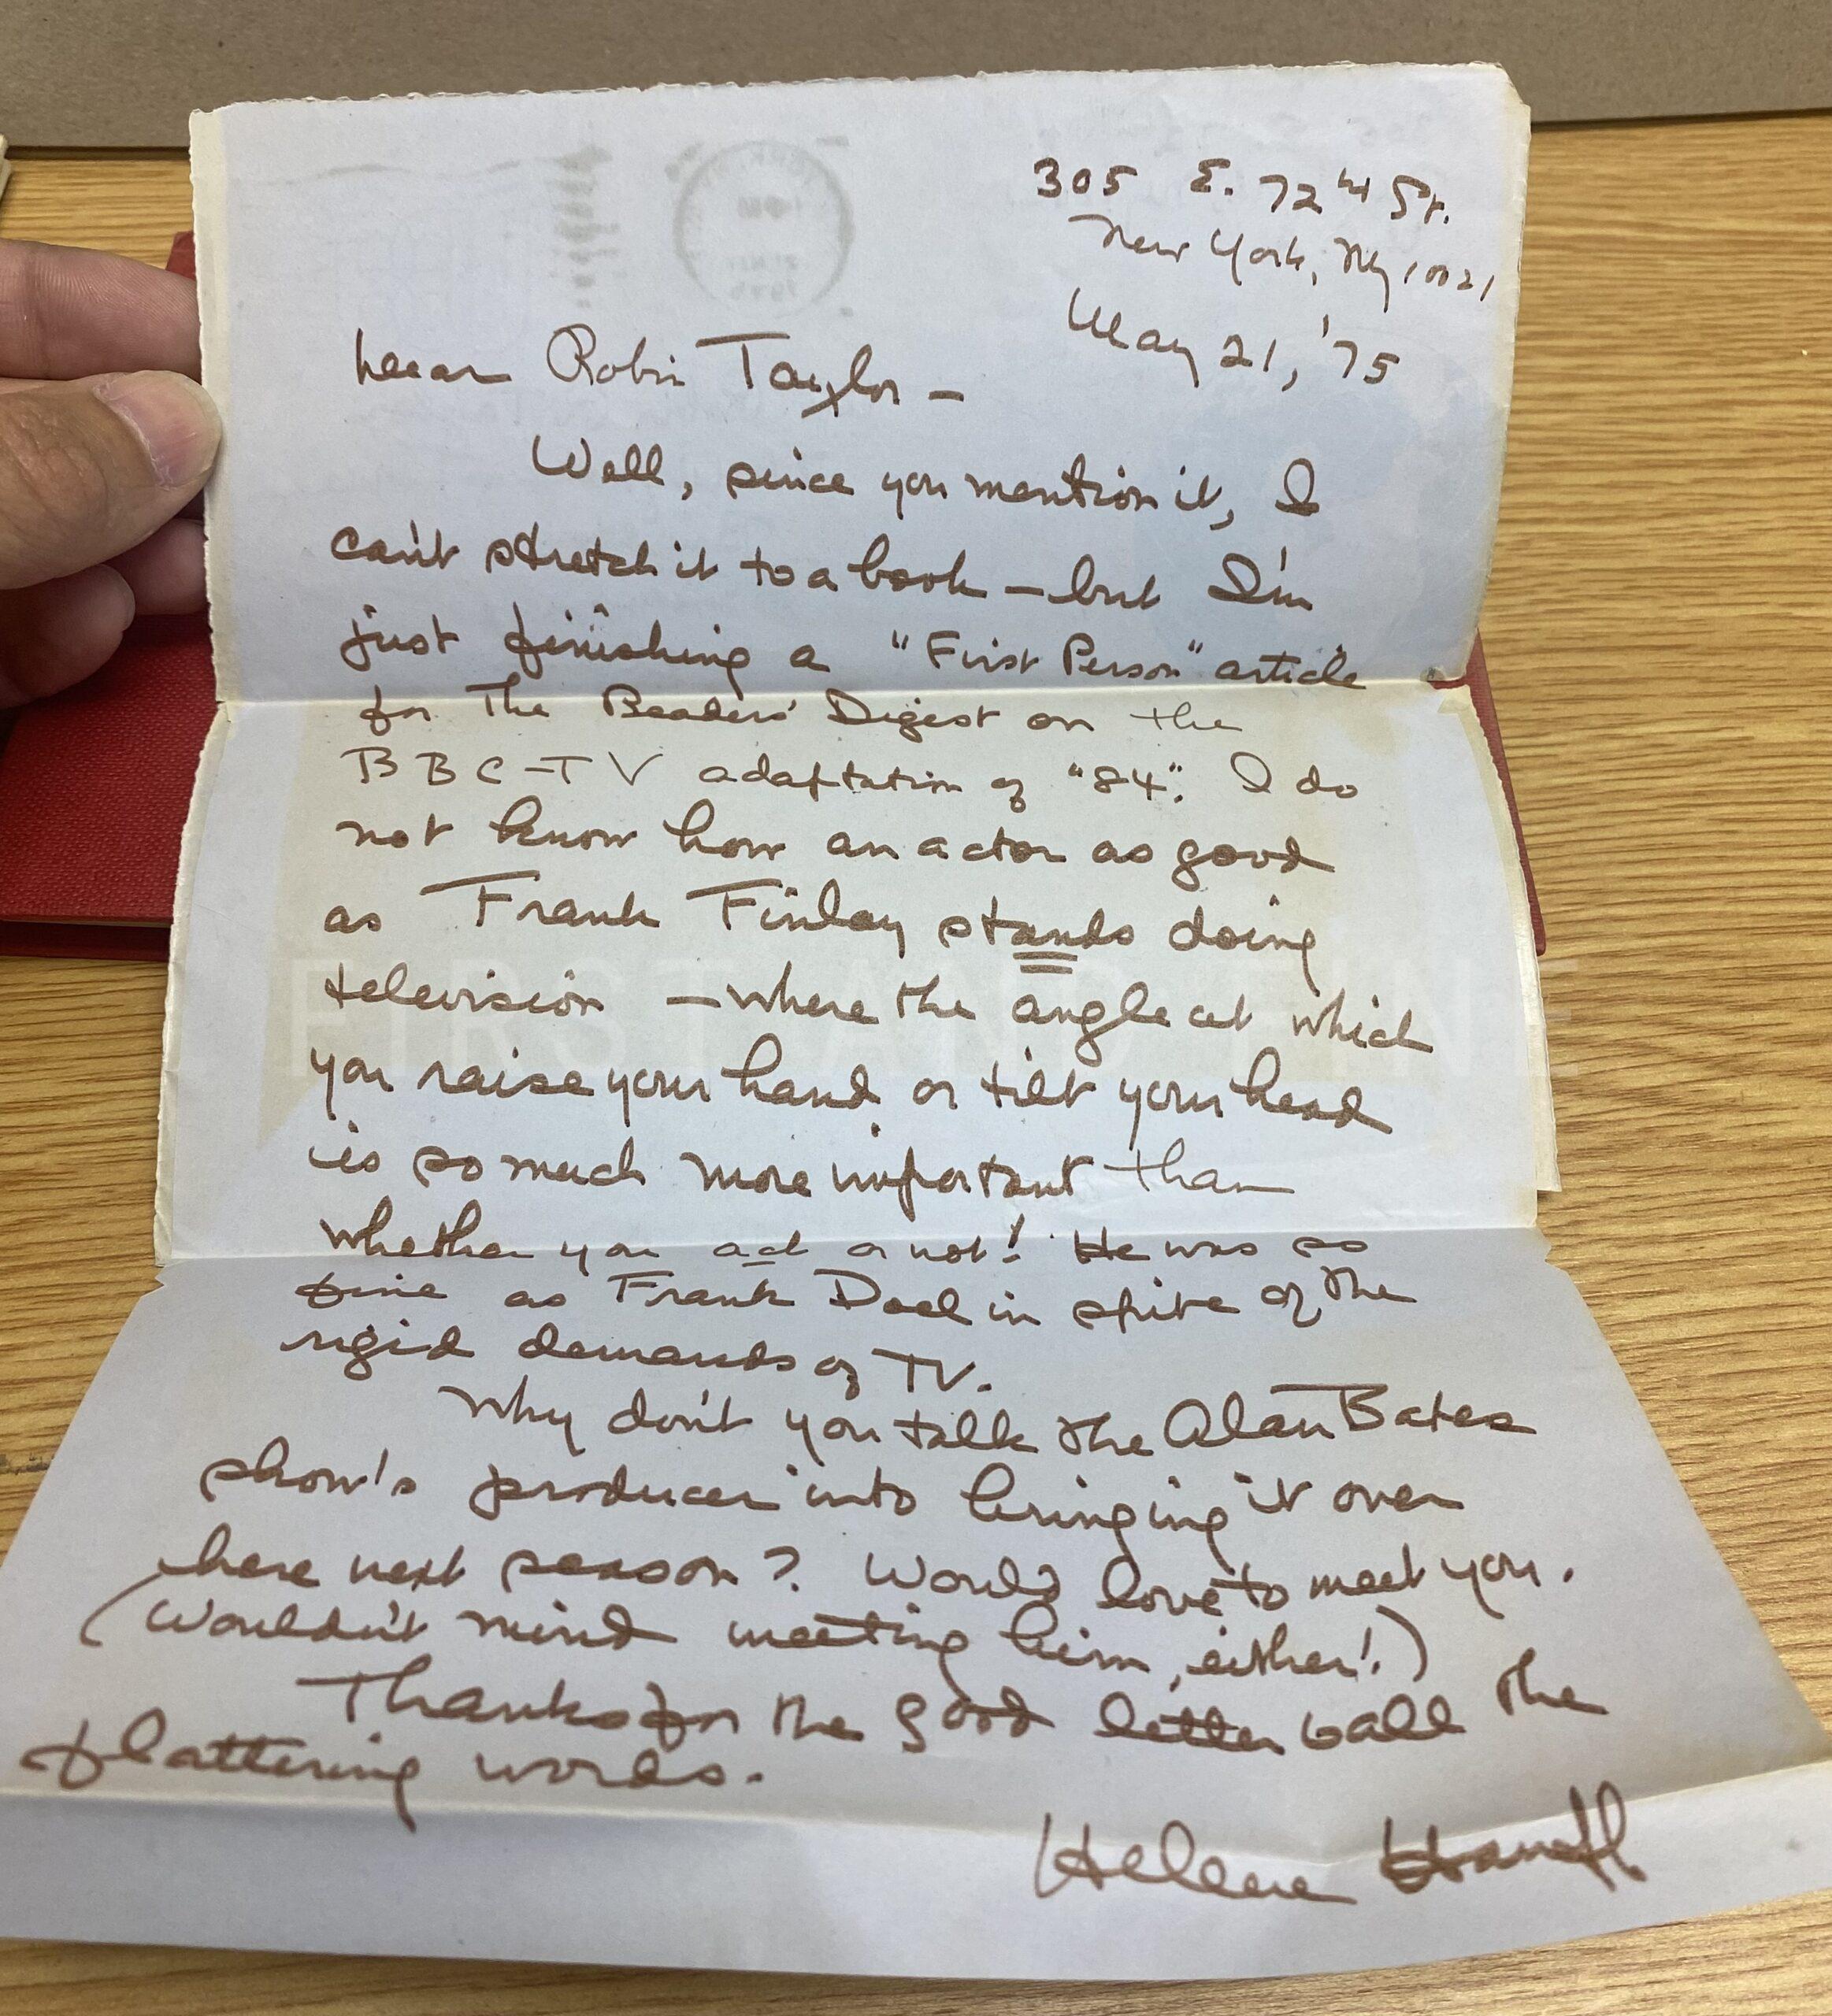 305 E. 72nd St.
New York, NY 10021
May 21, '75
Dear Robin Taylor —
Well, since you mention it, I
can't stretch it to a book — but I'm
just finishing a "First Person" article
for The Readers' Digest on the
BBC-TV adaptation of "84". I do
not know how an actor as good
as Frank Finlay stands doing
television — where the angle at which
you raise your hand or tilt your head
is so much more important than
whether you act or not! He was so
fine as Frank Doel in spite of the
rigid demands of TV.
Why don't you talk the Alan Bates
show's producer into bringing it over
here next season? Would love to meet you.
(Wouldn't mind meeting him, either!)
Thanks for the good letter & all the
flattering words.
Helene Hanff
FIRST AND FINE